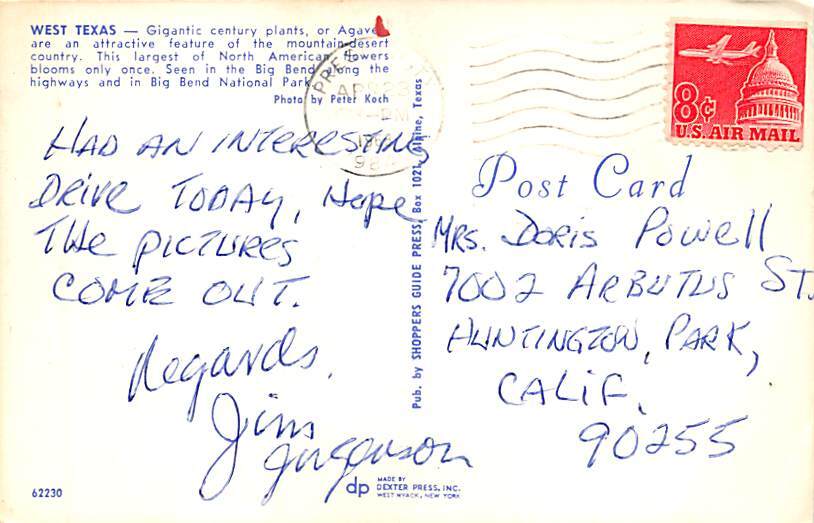 WEST TEXAS — Gigantic century plants, or Agave
are an attractive feature of the mountain-desert
country. This largest of North American flowers
blooms only once. Seen in the Big Bend along the
highways and in Big Bend National Park.
Photo by Peter Koch
HAD AN INTERESTING
DRIVE TODAY, Hope
THE PICTURES
COME OUT.
Regards,
Jim
Jorgenson
62230
Pub. by SHOPPERS GUIDE PRESS, Box 1021, Alpine, Texas
dp MADE BY
DEXTER PRESS, INC.
WEST NYACK, NEW YORK
APR 23
PM
8¢
U.S. AIR MAIL
Post Card
MRS. DORIS POWELL
7002 ARBUTUS ST.
HUNTINGTON, PARK,
CALIF.
90255